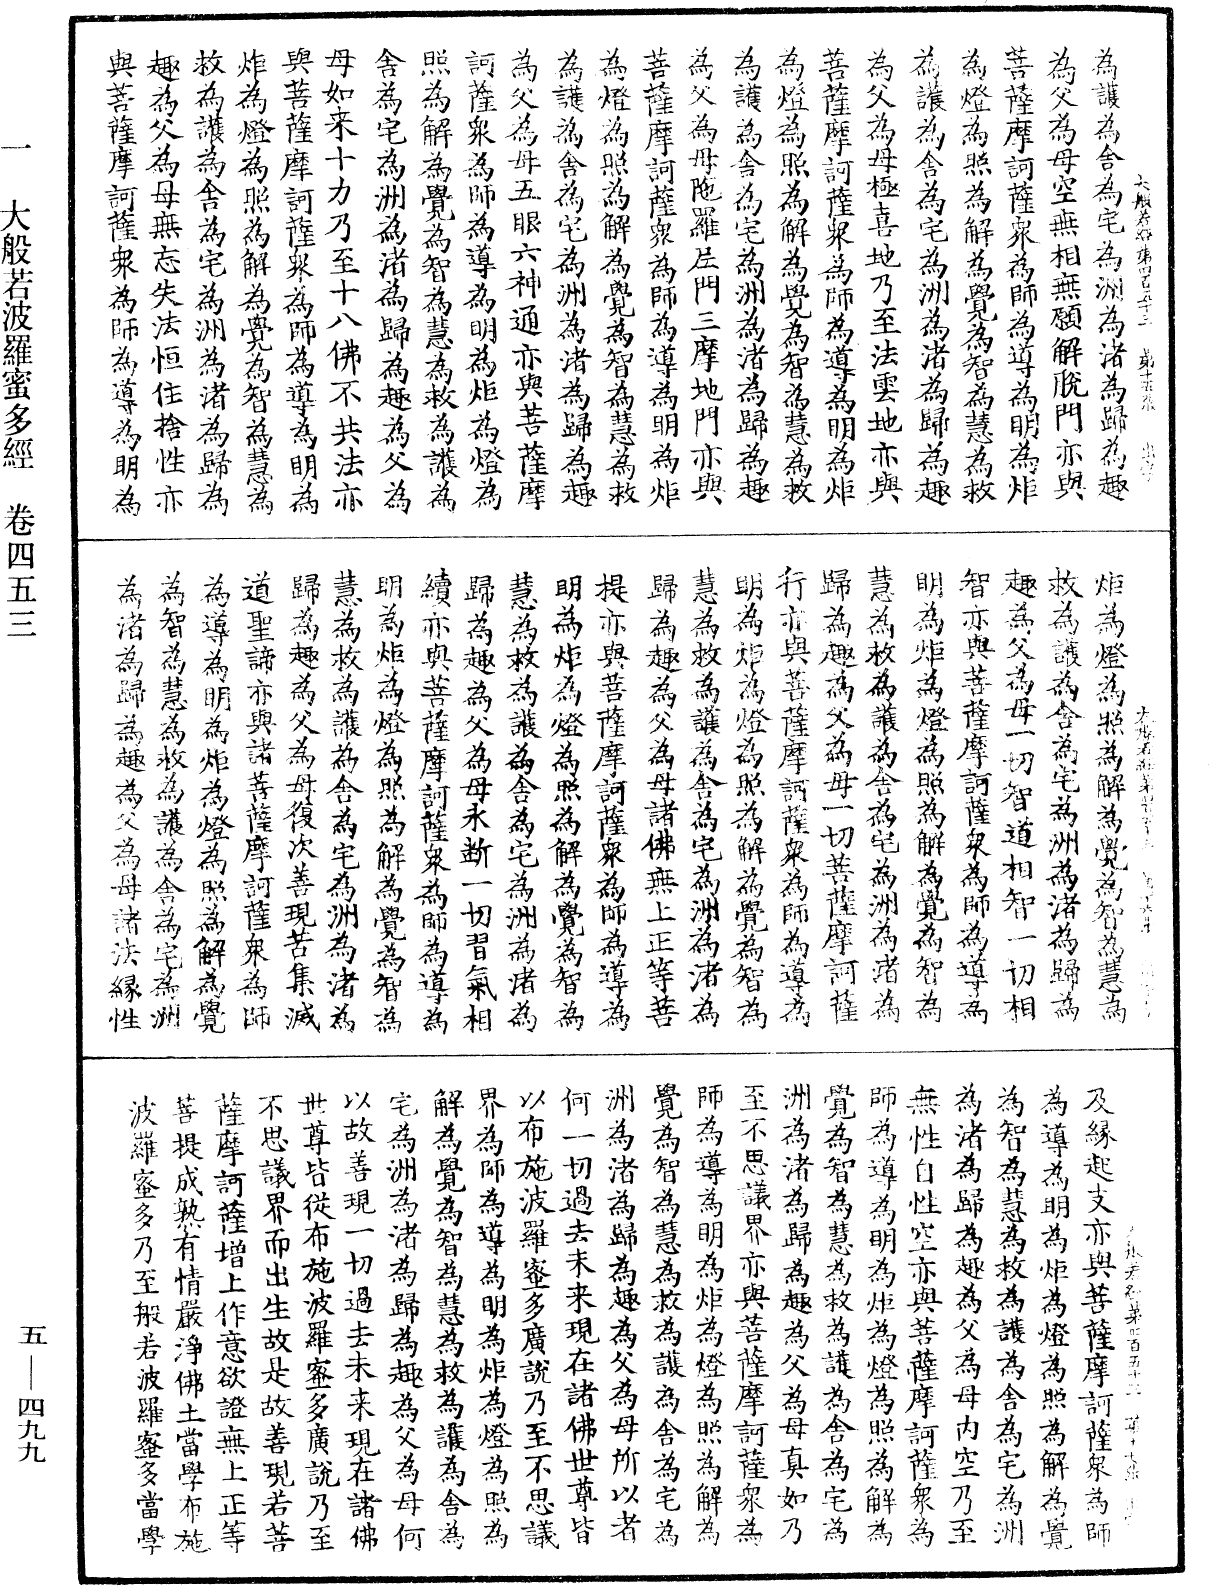 為護為舍為宅為洲為渚為歸為趣
為父為母空無相無願解脫門亦與
菩薩摩訶薩衆為師為導為明為炬
為燈為照為解為覺為智為慧為救
為護為舍為宅為洲為渚為歸為趣
為父為母極喜地乃至法雲地亦與
菩薩摩訶薩衆為師為導為明為炬
為燈為照為解為覺為智為慧為救
為護為舍為宅為洲為渚為歸為趣
為父為母陁羅尼門三摩地門亦與
菩薩摩訶薩衆為師為導為明為炬
為燈為照為解為覺為智為慧為救
為護為舍為宅為洲為渚為歸為趣
為父為母五眼六神通亦與菩薩摩
訶薩衆為師為導為明為炬為燈為
照為解為覺為智為慧為救為護為
舍為宅為洲為渚為歸為趣為父為
母如来十力乃至十八佛不共法亦
與菩薩摩訶薩衆為師為導為明為
炬為燈為照為解為覺為智為慧為
救為護為舍為宅為洲為渚為歸為
趣為父為母無忘失法恒住捨性亦
與菩薩摩訶薩衆為師為導為明為
炬為燈為照為解為覺為智為慧為
救為護為舍為宅為洲為渚為歸為
趣為父為母一切智道相智一切相
智亦與菩薩摩訶薩衆為師為導為
明為炬為燈為照為解為覺為智為
慧為救為護為舍為宅為洲為渚為
歸為趣為父為母一切菩薩摩訶薩
行亦與菩薩摩訶薩衆為師為導為
明為炬為燈為照為解為覺為智為
慧為救為護為舍為宅為洲為渚為
歸為趣為父為母諸佛無上正等菩
提亦與菩薩摩訶薩衆為師為導為
明為炬為燈為照為解為覺為智為
慧為救為護為舍為宅為洲為渚為
歸為趣為父為母永断一切習氣相
續亦與菩薩摩訶薩衆為師為導為
明為炬為燈為照為解為覺為智為
慧為救為護為舍為宅為洲為渚為
歸為趣為父為母復次善現苦集滅
道聖諦亦與諸菩薩摩訶薩衆為師
為導為明為炬為燈為照為解為覺
為智為慧為救為護為舍為宅為洲
為渚為歸為趣為父為母諸法緣性
及緣起支亦與菩薩摩訶薩衆為師
為導為明為炬為燈為照為解為覺
為智為慧為救為護為舍為宅為洲
為渚為歸為趣為父為母内空乃至
無性自性空亦與菩薩摩訶薩衆為
師為導為明為炬為燈為照為解為
覺為智為慧為救為護為舍為宅為
洲為渚為歸為趣為父為母真如乃
至不思議界亦與菩薩摩訶薩衆為
師為導為明為炬為燈為照為解為
覺為智為慧為救為護為舍為宅為
洲為渚為歸為趣為父為母所以者
何一切過去未来現在諸佛世尊皆
以布施波羅蜜多廣說乃至不思議
界為師為導為明為炬為燈為照為
解為覺為智為慧為救為護為舍為
宅為洲為渚為歸為趣為父為母何
以故善現一切過去未来現在諸佛
世尊皆從布施波羅蜜多廣說乃至
不思議界而出生故是故善現若菩
薩摩訶薩增上作意欲證無上正等
菩提成熟有情嚴淨佛土當學布施
波羅蜜多乃至般若波羅蜜多當學
一 大般若波羅蜜多經 卷四五三
五—四九九